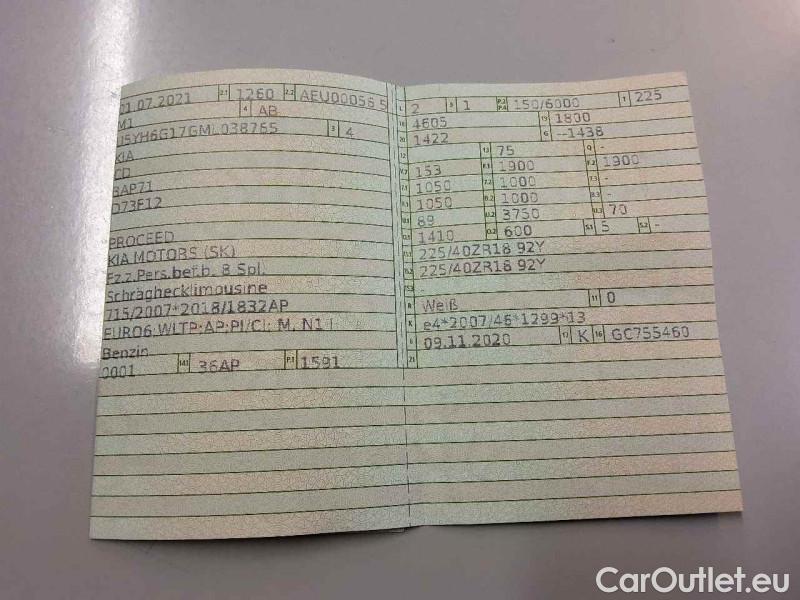 01.07.2021 2.1 1260 2.2 AEU00056 5
M1 4 AB
U5YH6G17GML038765 3 4
KIA
CD
BAP71
D73F12
PROCEED
KIA MOTORS (SK)
Fz.z.Pers.bef.b. 8 Spl.
Schräghecklimousine
715/2007*2018/1832AP
EURO6;WLTP;AP;PI/CI; M, N1 I
Benzin
0001 14.1 36AP P.1 1591
L 2 9 1 P.2 P.4 150/6000 T 225
18 4605 19 1800
20 1422 G --1438
12 13 75 Q -
V.7 153 F.1 1900 F.2 1900
7.1 1050 7.2 1000 7.3 -
8.1 1050 8.2 1000 8.3 -
U.1 89 U.2 3750 U.3 70
O.1 1410 O.2 600 S.1 5 S.2 -
15.1 225/40ZR18 92Y
15.2 225/40ZR18 92Y
15.3 -
R Weiß 11 0
K e4*2007/46*1299*13
6 09.11.2020 17 K 16 GC755460
21
CarOutlet.eu